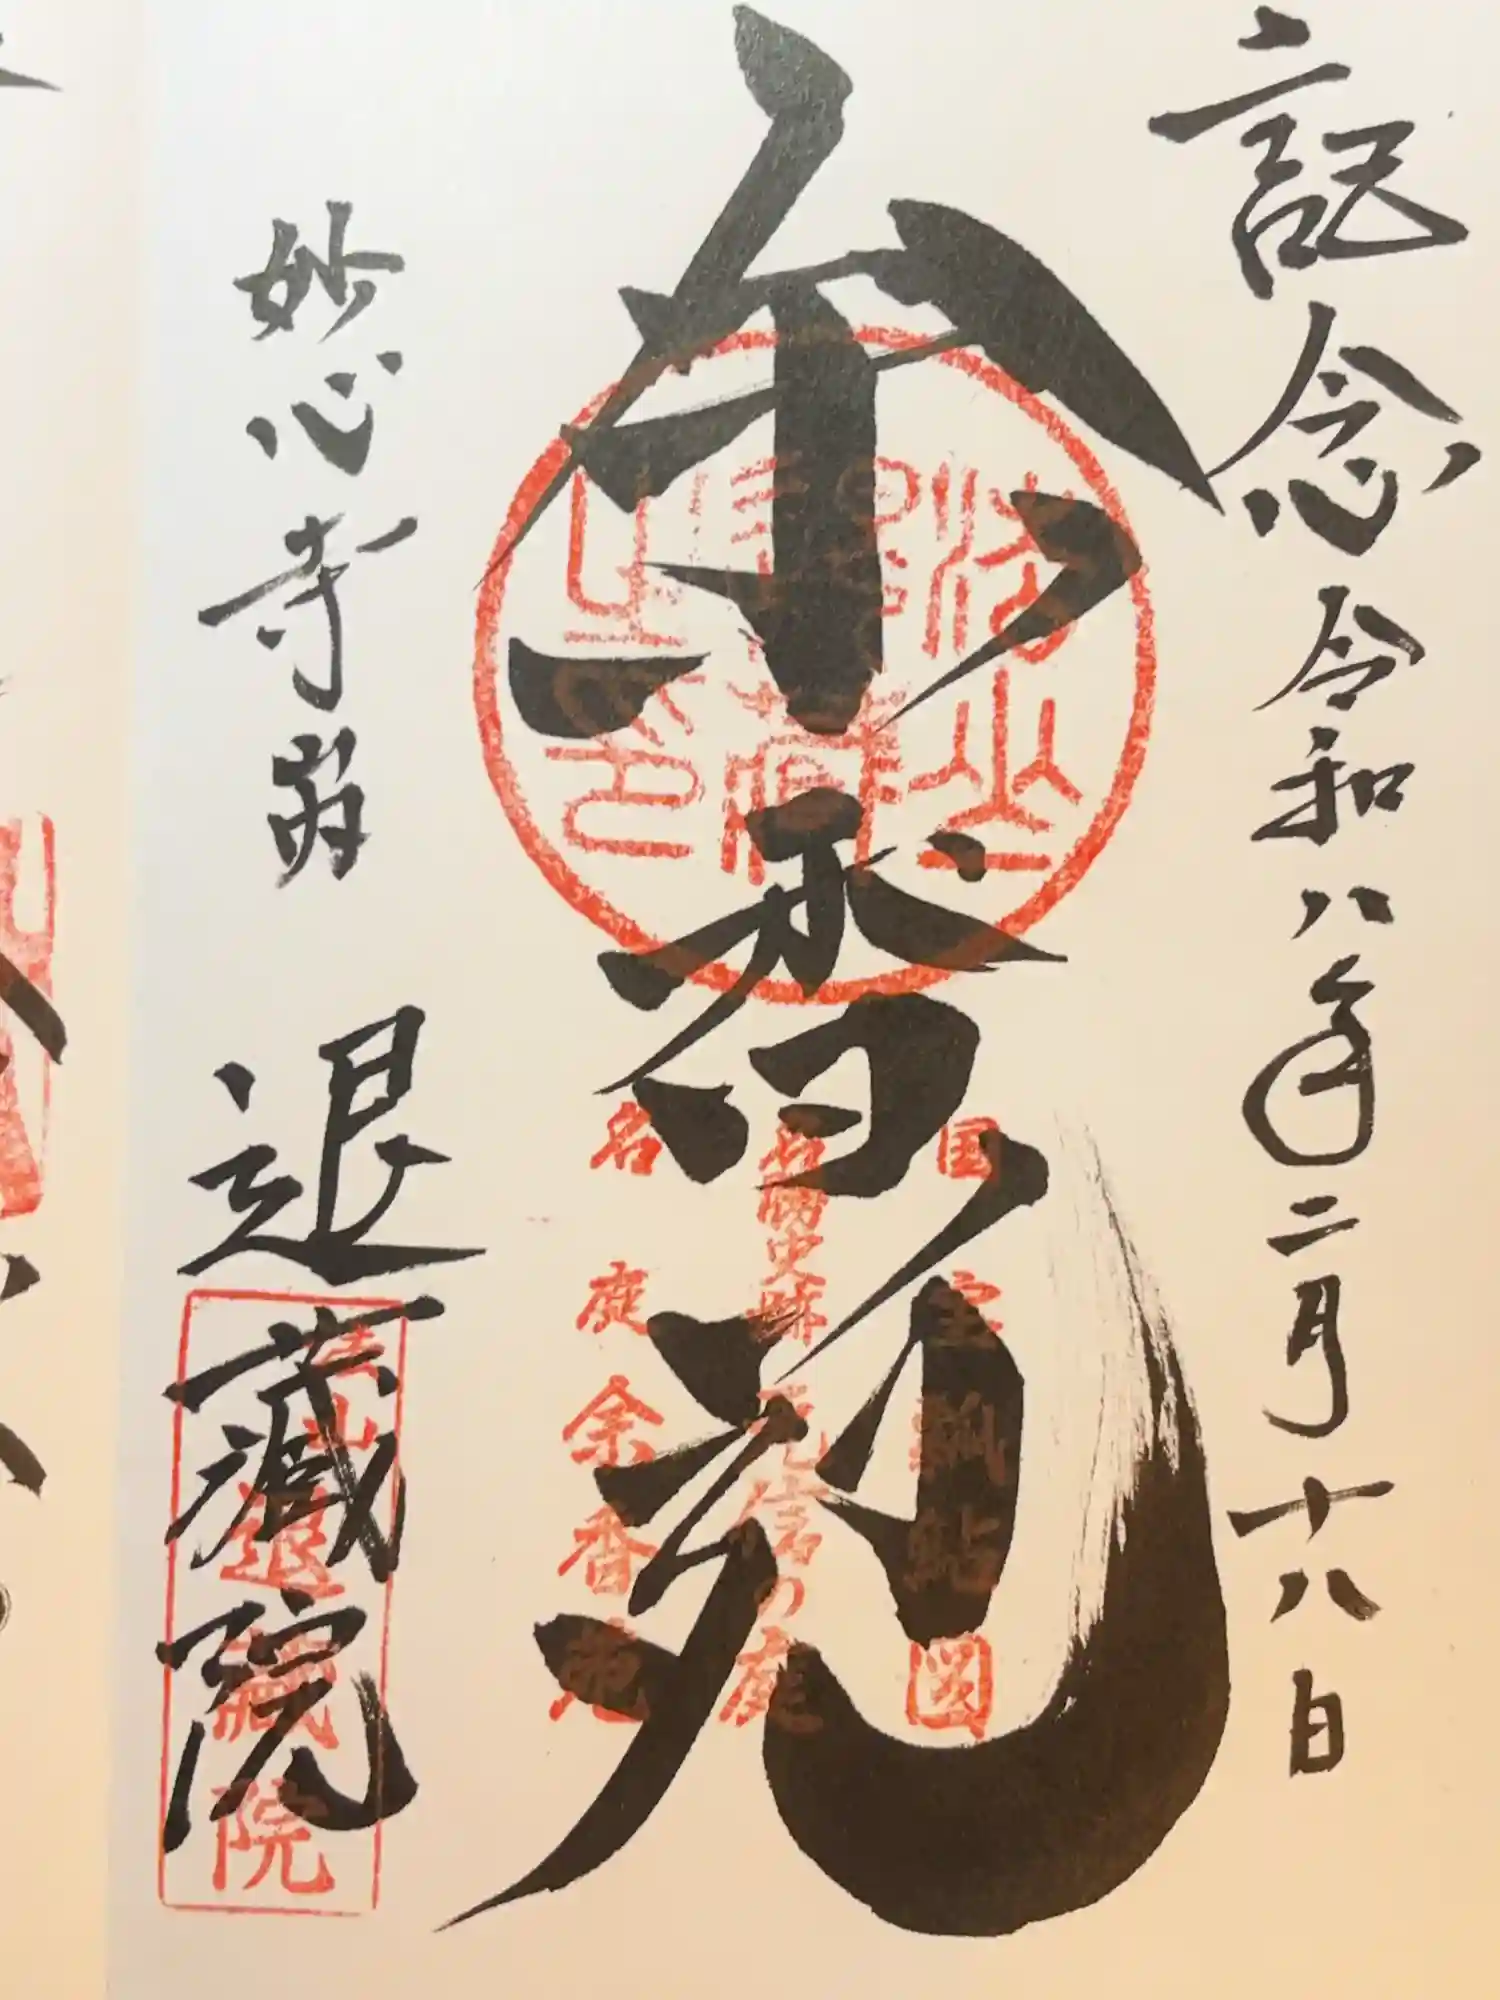 記念 令和八年二月十八日
余香苑
国宝瓢鮎図
名勝史跡 元信の庭
名庭 余香苑
妙心寺塔頭 退蔵院
退蔵院